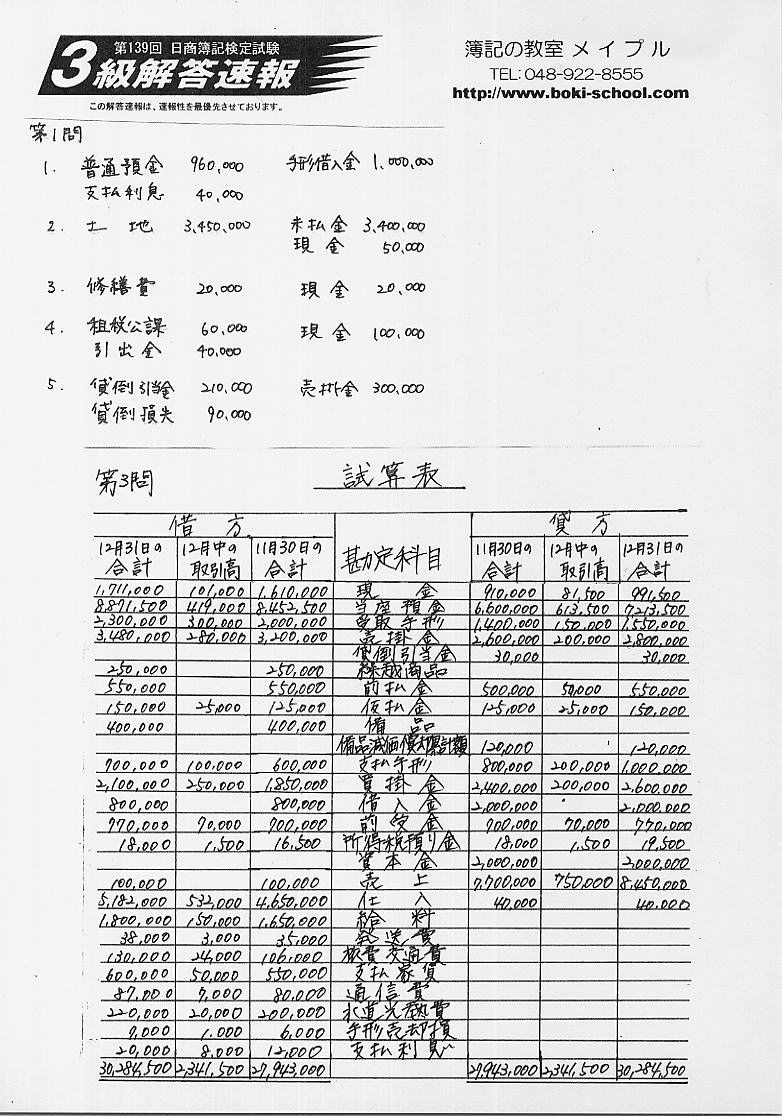 第139回 日商簿記検定試験
3級解答速報
この解答速報は、速報性を最優先させております。
簿記の教室 メイプル
TEL: 048-922-8555
http://www.boki-school.com
第1問
1. 普通預金 960,000 手形借入金 1,000,000
支払利息 40,000
2. 土地 3,450,000 未払金 3,400,000
現金 50,000
3. 修繕費 20,000 現金 20,000
4. 租税公課 60,000 現金 100,000
引出金 40,000
5. 貸倒引当金 210,000 売掛金 300,000
貸倒損失 90,000
第3問 試算表
借方 貸方
12月31日の合計 12月中の取引高 11月30日の合計 勘定科目 11月30日の合計 12月中の取引高 12月31日の合計
1,711,000 101,000 1,610,000 現金 910,000 81,500 991,500
8,871,500 419,000 8,452,500 当座預金 6,600,000 613,500 7,213,500
2,300,000 300,000 2,000,000 受取手形 1,400,000 150,000 1,550,000
3,480,000 280,000 3,200,000 売掛金 2,600,000 200,000 2,800,000
貸倒引当金 30,000 30,000
250,000 250,000 繰越商品
550,000 550,000 前払金 500,000 50,000 550,000
150,000 25,000 125,000 仮払金 125,000 25,000 150,000
400,000 400,000 備品
備品減価償却累計額 120,000 120,000
700,000 100,000 600,000 支払手形 800,000 200,000 1,000,000
2,100,000 250,000 1,850,000 買掛金 2,400,000 200,000 2,600,000
800,000 800,000 借入金 2,000,000 2,000,000
770,000 70,000 700,000 前受金 700,000 70,000 770,000
18,000 1,500 16,500 所得税預り金 18,000 1,500 19,500
資本金 2,000,000 2,000,000
100,000 100,000 売上 7,700,000 750,000 8,450,000
5,182,000 532,000 4,650,000 仕入 40,000 40,000
1,800,000 150,000 1,650,000 給料
38,000 3,000 35,000 発送費
130,000 24,000 106,000 旅費交通費
600,000 50,000 550,000 支払家賃
87,000 7,000 80,000 通信費
220,000 20,000 200,000 水道光熱費
7,000 1,000 6,000 手形売却損
20,000 8,000 12,000 支払利息
30,284,500 2,341,500 27,943,000 27,943,000 2,341,500 30,284,500